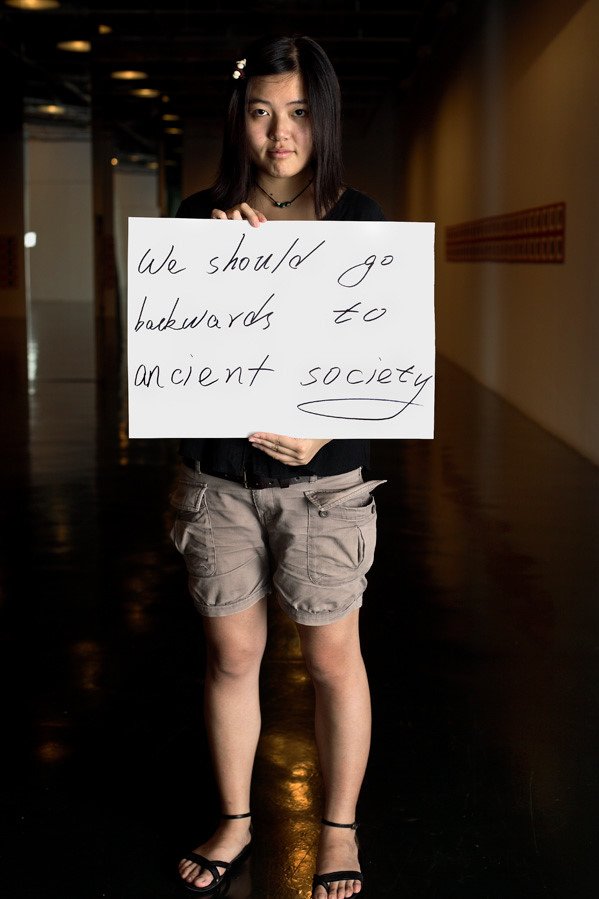 We should go
backwards to
ancient society